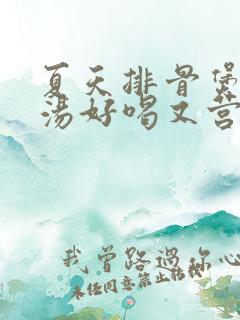 夏天排骨煲
汤好喝又营
我曾路过你心
未经同意禁止转载